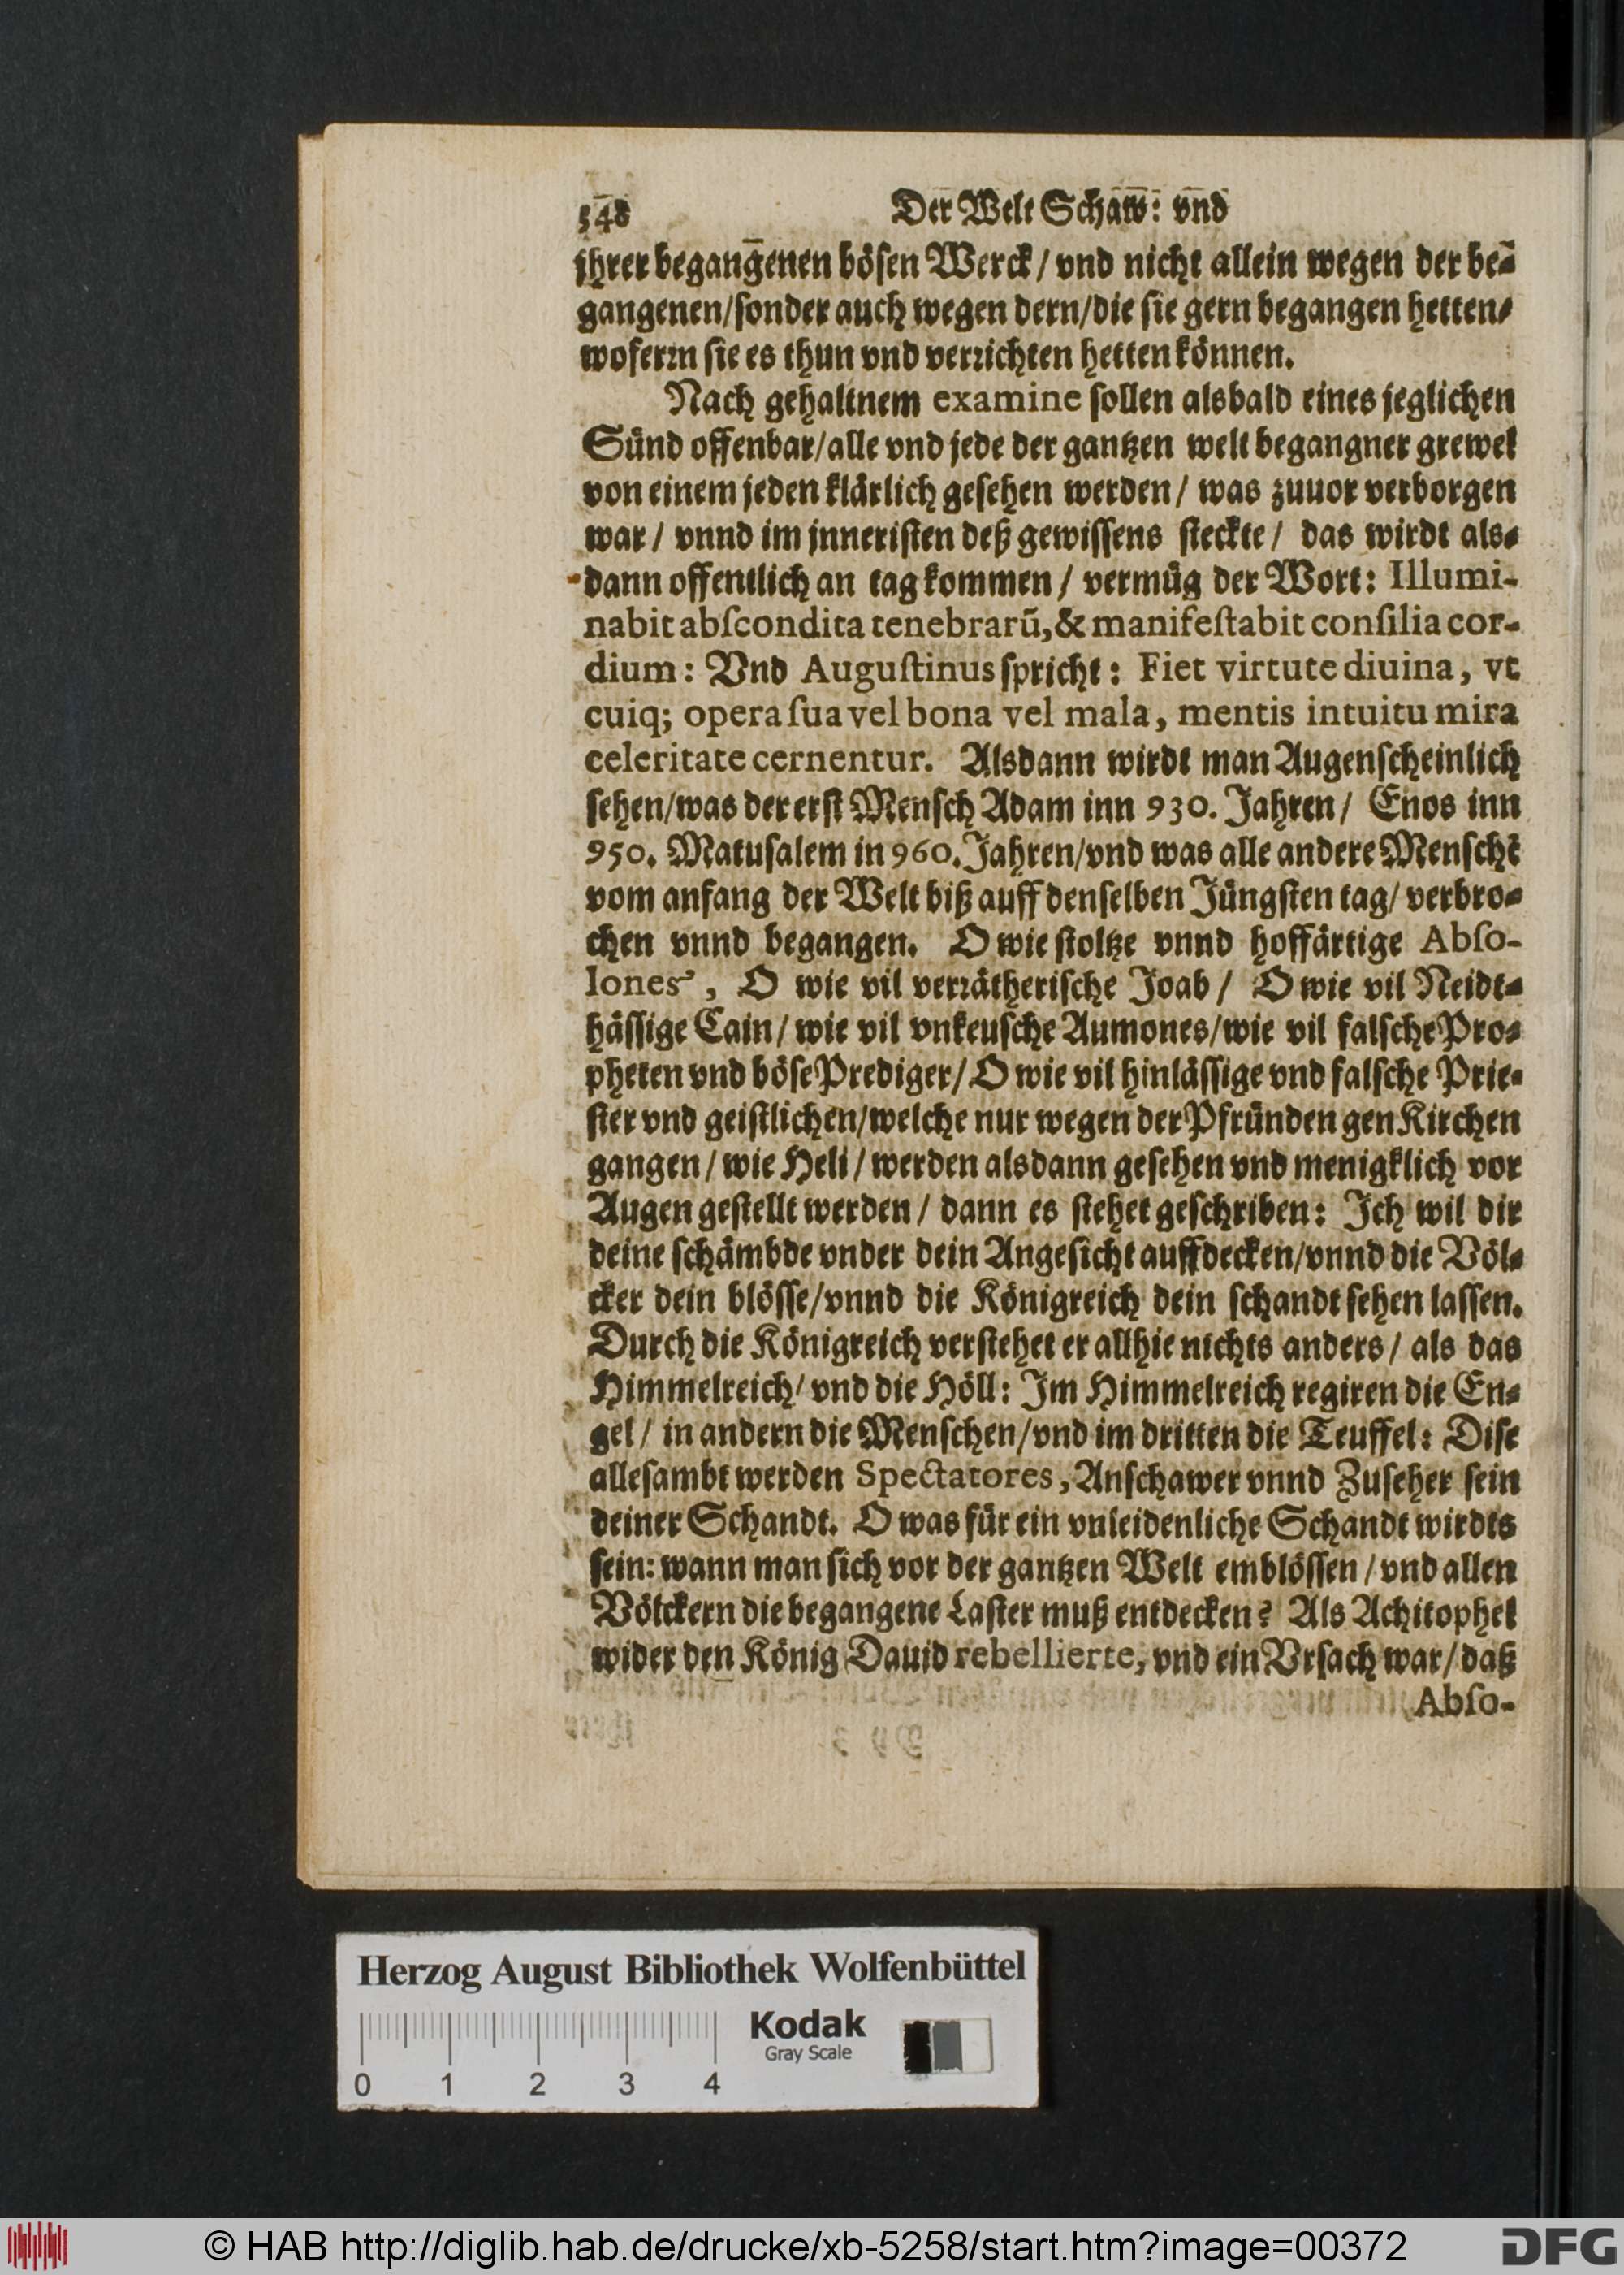 348 Der Welt Schaw: vnd
jhrer begangenen bösen Werck / vnd nicht allein wegen der be-
gangenen/sonder auch wegen dern/die sie gern begangen hetten/
woferrn sie es thun vnd verrichten hetten können.
Nach gehaltnem examine sollen alsbald eines jeglichen
Sünd offenbar/alle vnd jede der gantzen welt begangner grewel
von einem jeden klärlich gesehen werden / was zuuor verborgen
war / vnnd im jnneristen deß gewissens steckte / das wirdt als-
dann offentlich an tag kommen / vermüg der Wort: Illumi-
nabit abſcondita tenebrarũ,& manifeſtabit conſilia cor-
dium: Vnd Auguſtinus spricht: Fiet virtute diuina, vt
cuiq; opera ſua vel bona vel mala, mentis intuitu mira
celeritate cernentur. Alsdann wirdt man Augenscheinlich
sehen/was der erst Mensch Adam inn 930. Jahren / Enos inn
950. Matusalem in 960. Jahren/vnd was alle andere Menschẽ
vom anfang der Welt biß auff denselben Jüngsten tag/ verbro-
chen vnnd begangen. O wie stoltze vnnd hoffärtige Abſo-
lones, O wie vil verrätherische Joab / O wie vil Neidt-
hässige Cain / wie vil vnkeusche Aumones/wie vil falsche Pro-
pheten vnd böse Prediger/ O wie vil hinlässige vnd falsche Prie-
ster vnd geistlichen/welche nur wegen der Pfründen gen Kirchen
gangen / wie Heli / werden alsdann gesehen vnd menigklich vor
Augen gestellt werden / dann es stehet geschriben: Ich wil dir
deine schämbde vnder dein Angesicht auffdecken/vnnd die Völ-
cker dein blösse/vnnd die Königreich dein schandt sehen lassen.
Durch die Königreich verstehet er allhie nichts anders / als das
Himmelreich/ vnd die Höll: Im Himmelreich regiren die En-
gel / in andern die Menschen/vnd im dritten die Teuffel: Dise
allesambt werden Spectatores, Anschawer vnnd Zuseher sein
deiner Schandt. O was für ein vnleidenliche Schandt wirdts
sein: wann man sich vor der gantzen Welt emblössen / vnd allen
Völckern die begangene Laster muß entdecken? Als Achitophel
wider den König Dauid rebellierte, vnd ein Vrsach war/ daß
Abſo-
Herzog August Bibliothek Wolfenbüttel
Kodak
Gray Scale
0 1 2 3 4
© HAB http://diglib.hab.de/drucke/xb-5258/start.htm?image=00372
DFG